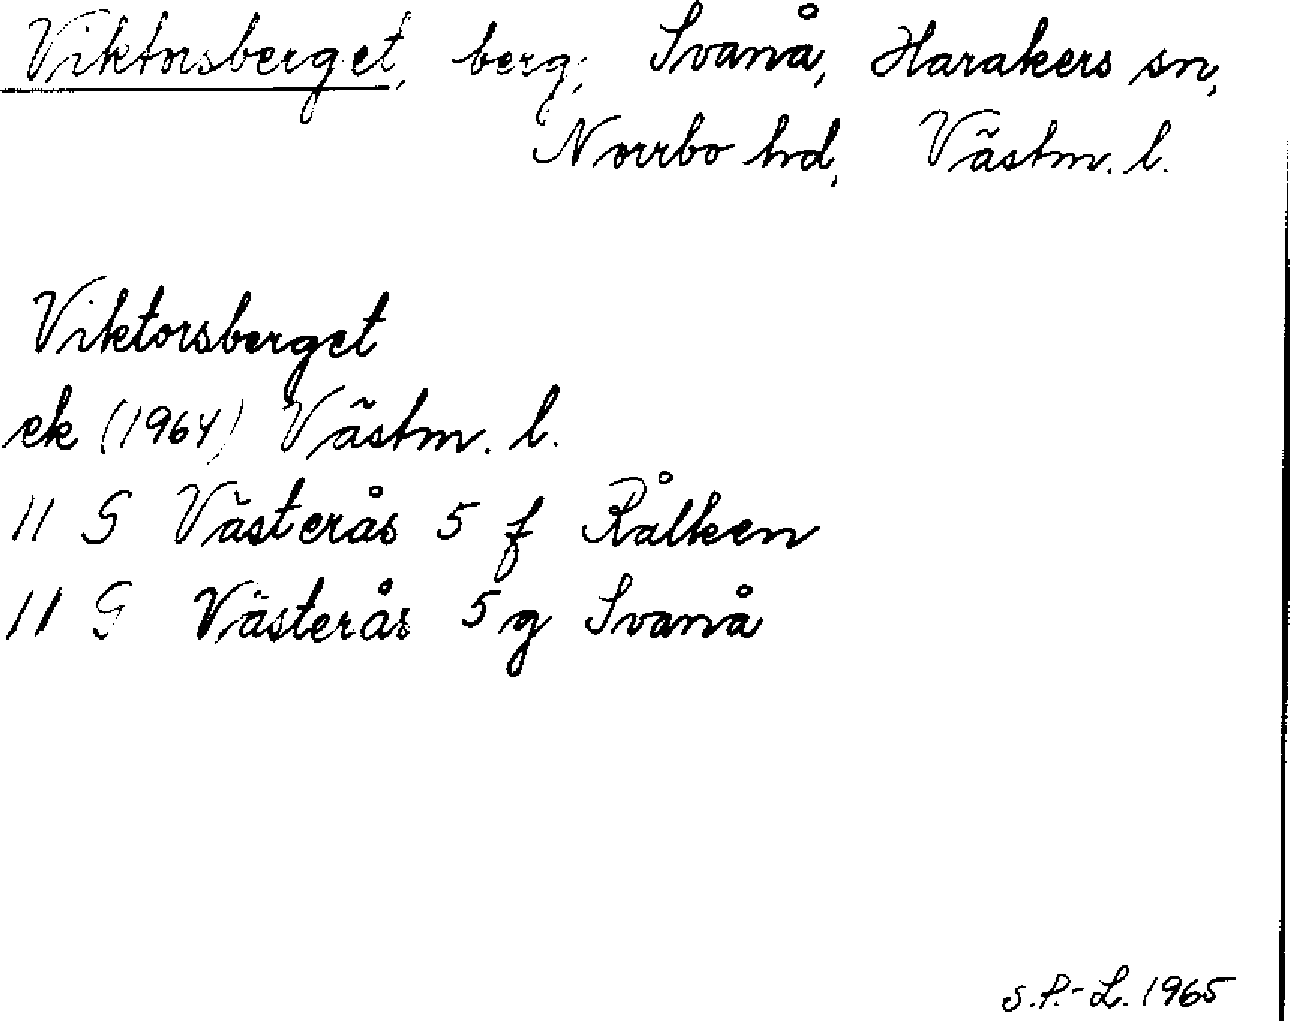 Viktorsberget, berg, Svanå, Harakers sn,
Norrbo hd, Västm. l.
Viktorsberget
ek (1964) Västm. l.
11 G Västerås 5 f Rålken
11 G Västerås 5 g Svanå
S.P.-L. 1965